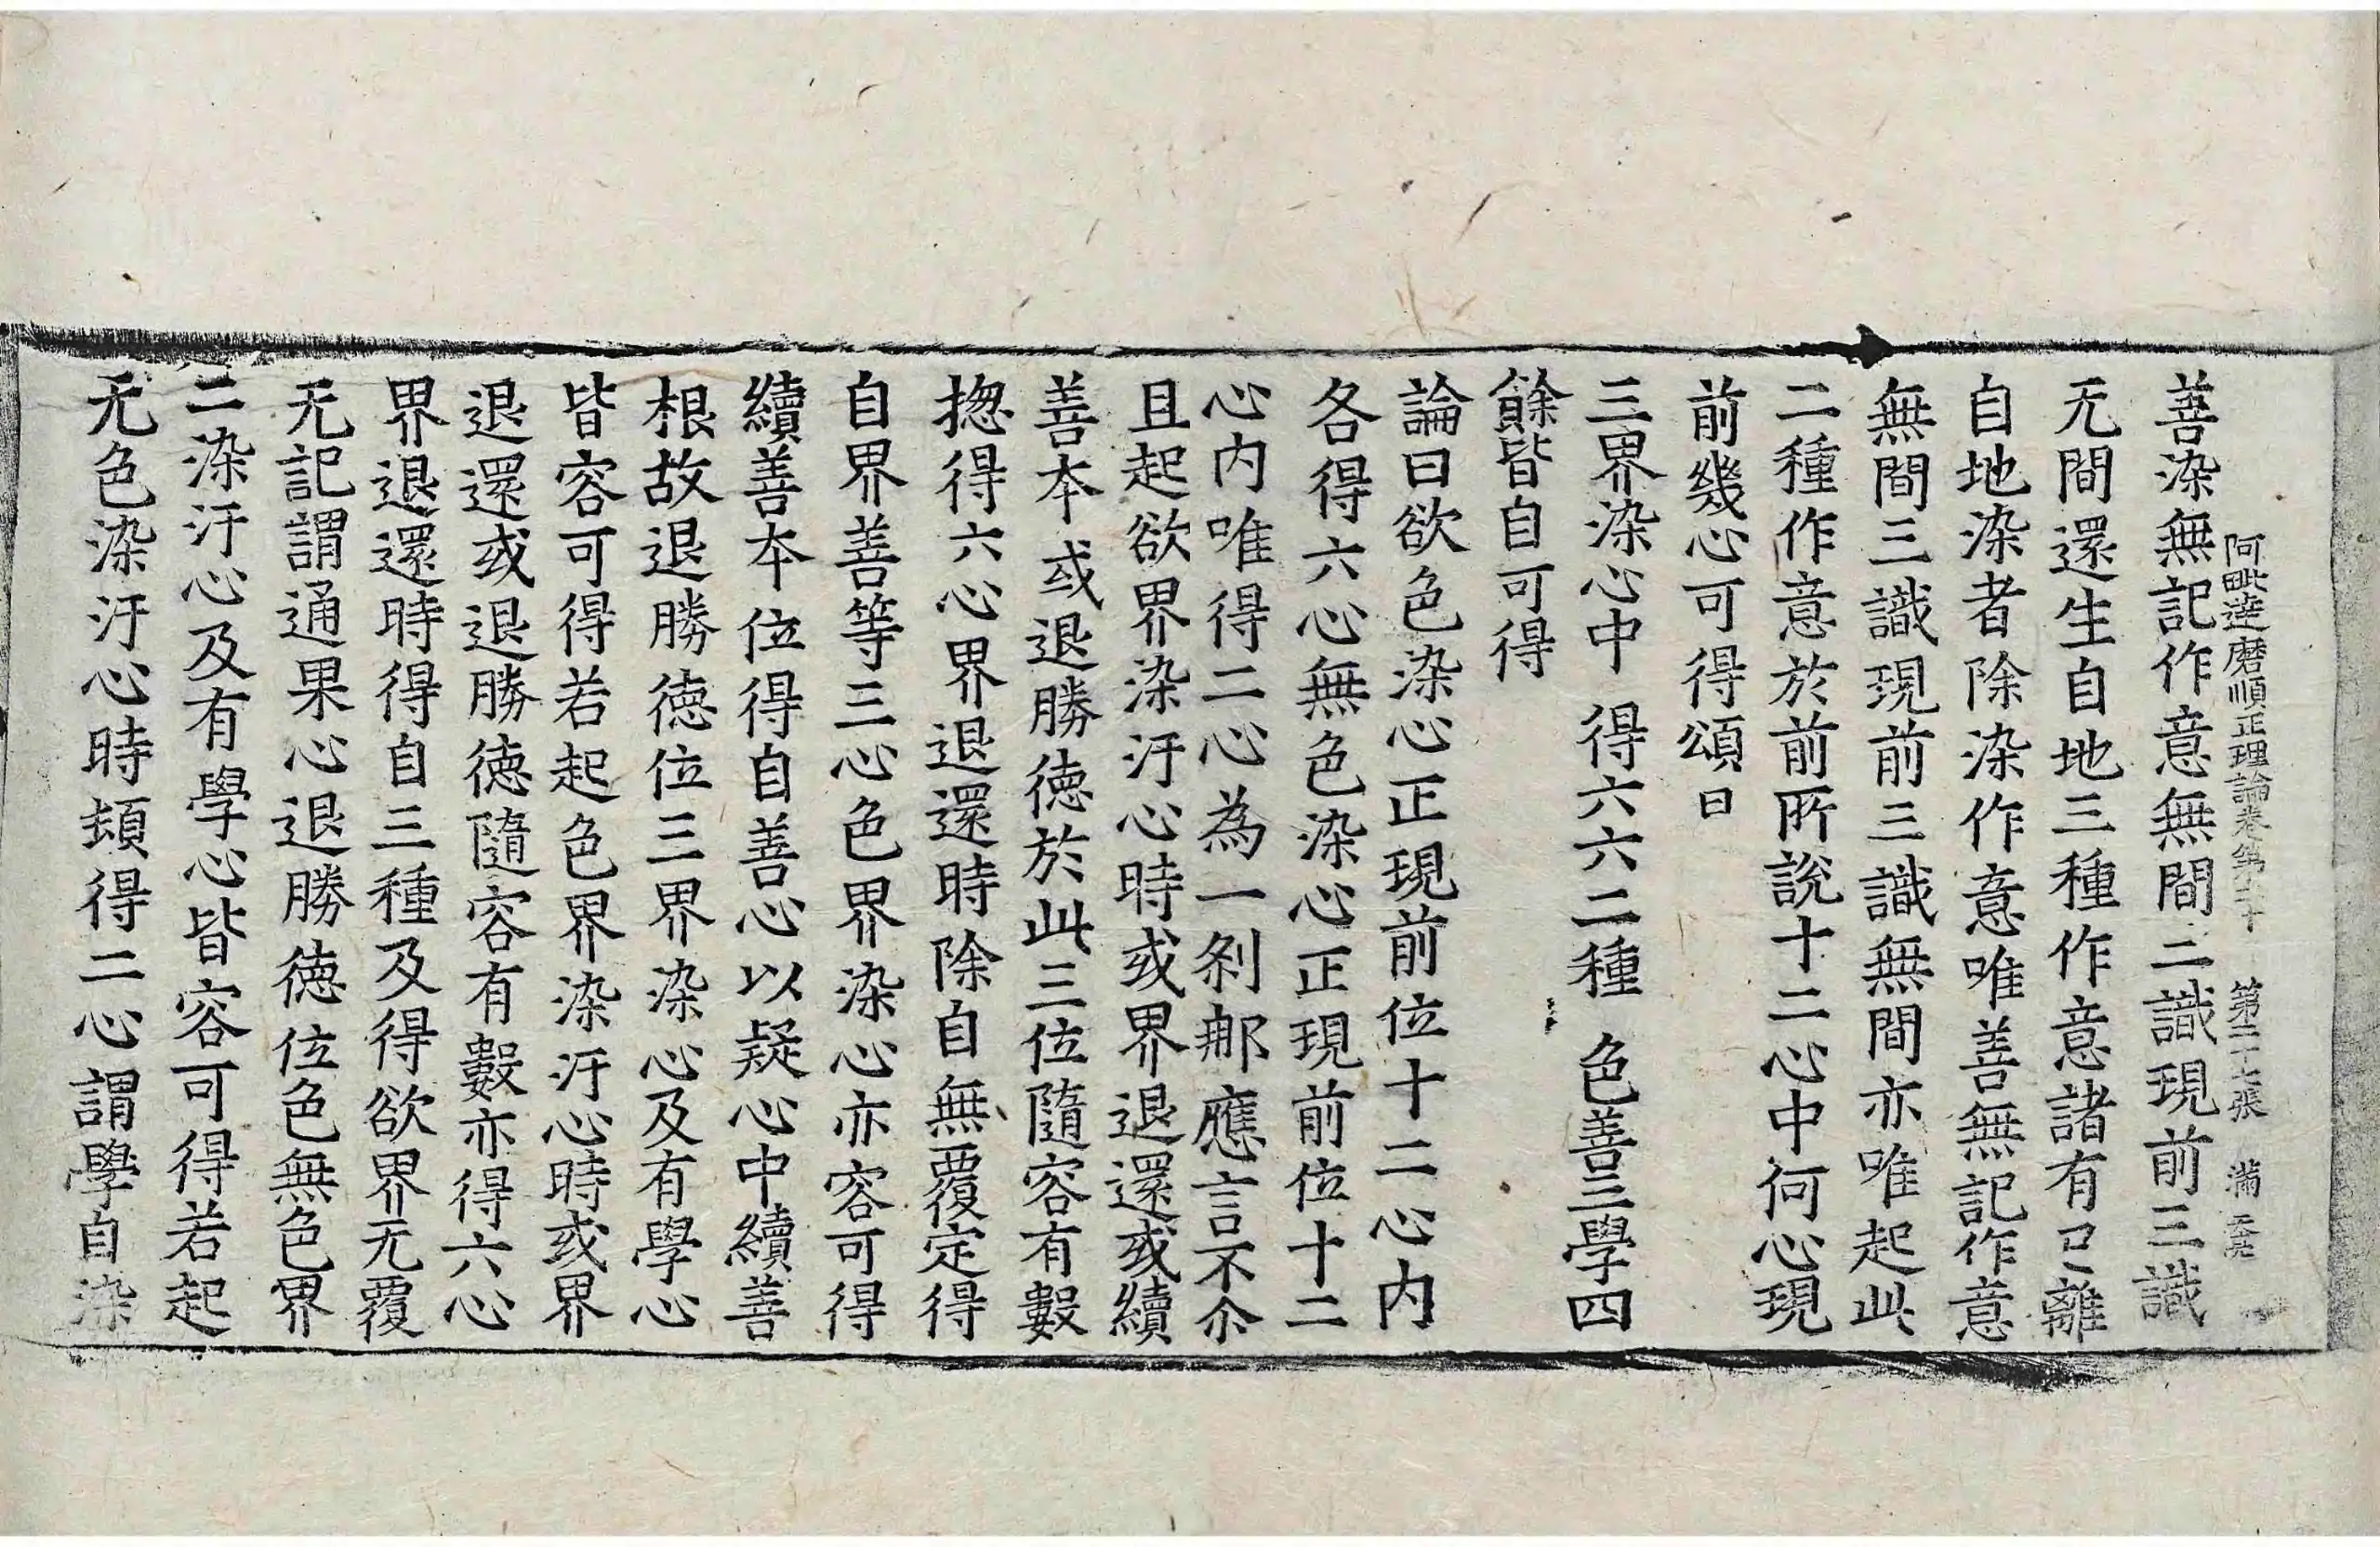 阿毗達磨順正理論卷第二十　第二十七張　滿
善染無記作意無間二識現前三識
无間還生自地三種作意諸有已離
自地染者除染作意唯善無記作意
無間三識現前三識無間亦唯起此
二種作意於前所說十二心中何心現
前幾心可得頌曰
三界染心中　得六六二種　色善三學四
餘皆自可得
論曰欲色染心正現前位十二心內
各得六心無色染心正現前位十二
心內唯得二心為一剎那應言不尒
且起欲界染汙心時或界退還或續
善本或退勝德於此三位隨容有數
揔得六心界退還時除自無覆定得
自界善等三心色界染心亦容可得
續善本位得自善心以疑心中續善
根故退勝德位三界染心及有學心
皆容可得若起色界染汙心時或界
退還或退勝德隨容有數亦得六心
界退還時得自三種及得欲界无覆
无記謂通果心退勝德位色無色界
二染汙心及有學心皆容可得若起
无色染汙心時頓得二心謂學自染